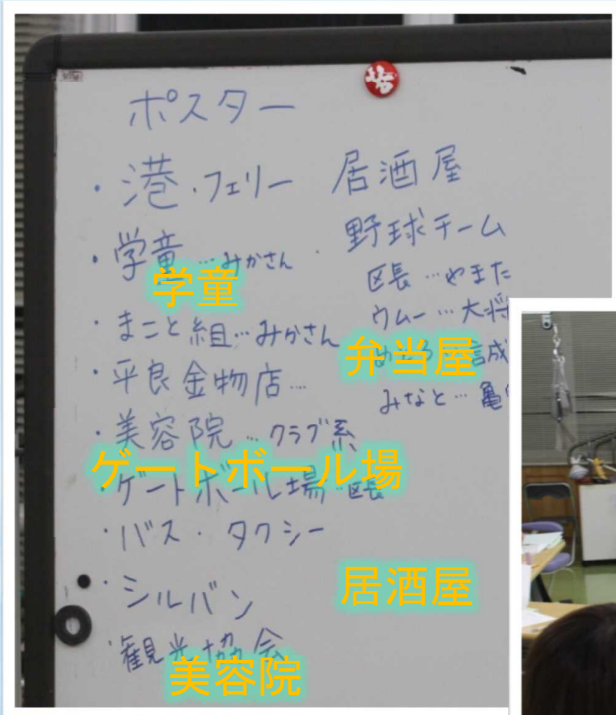 ポスター
・港・フェリー
・学童…みかさん
・まこと組…みかさん
・平良金物店…
・美容院…クラブ系
・ゲートボール場…区長
・バス・タクシー
・シルバン
・観光協会
居酒屋
・野球チーム
区長…やまた
ウムー…大将
信成
みなと…亀
学童
弁当屋
ゲートボール場
居酒屋
美容院